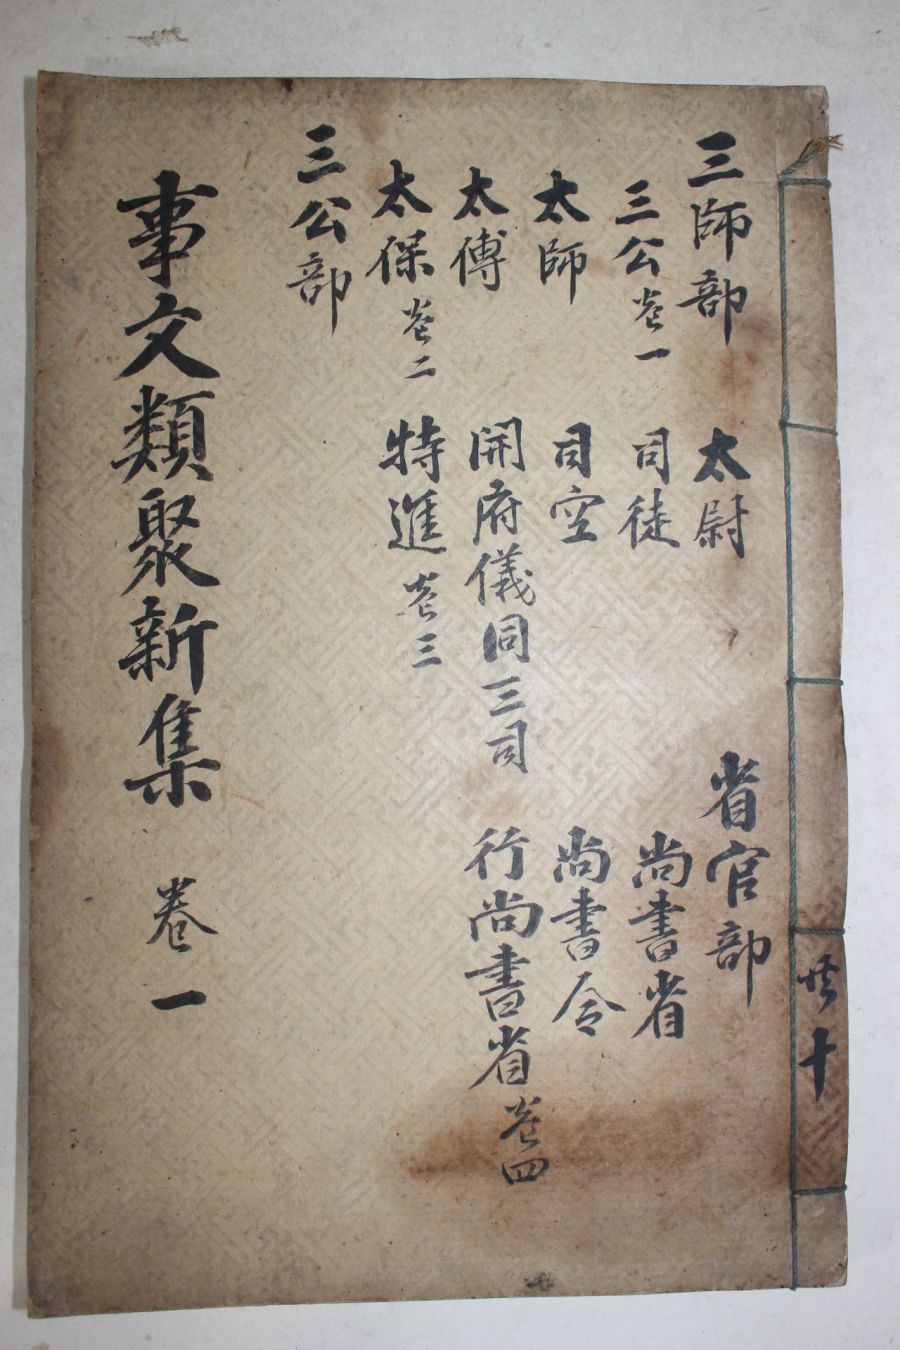 共十
三師部
三公 卷一
太師
太傅
太保 卷二
三公部
太尉
司徒
司空
開府儀同三司
特進 卷三
省官部
尚書省
尚書令
行尚書省 卷四
事文類聚新集 卷一